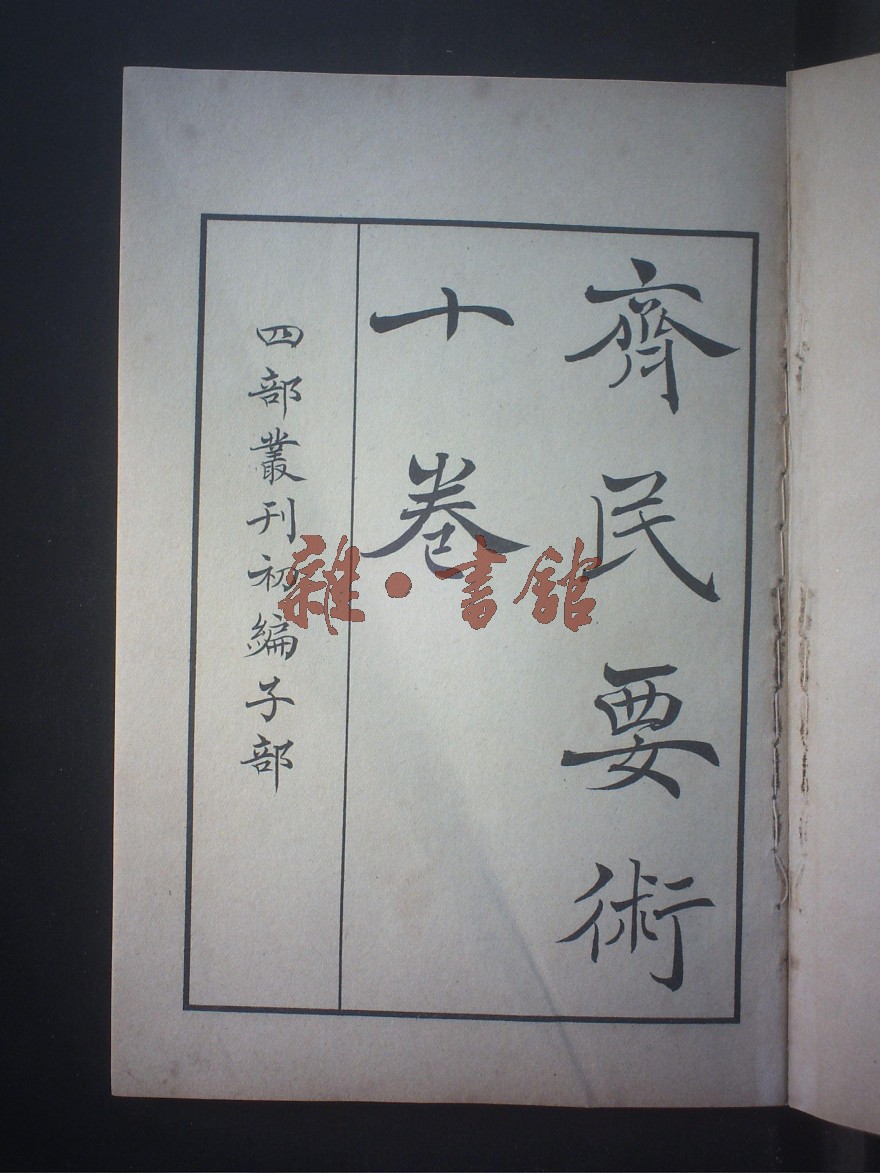 齊民要術
十卷
四部叢刊初編子部
雜·書館